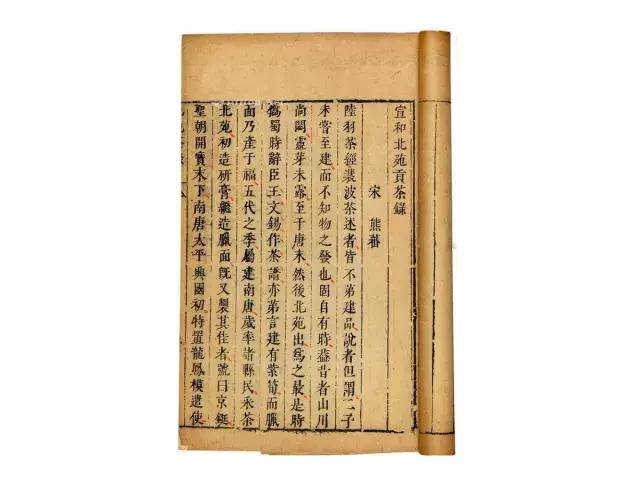 宣和北苑貢茶錄
宋 熊蕃
陸羽茶經裴波茶述者皆不第建品說者但謂二子
未嘗至建而不知物之發也固自有時葢昔者山川
尚閟靈芽未露至于唐末然後北苑出爲之最是時
僞蜀時辭臣王文錫作茶譜亦第言建有紫筍而臘
面乃產于福五代之季屬建南唐歲率諸縣民采茶
北苑初造研膏繼造臘面旣又製其佳者號曰京鋌
聖朝開寶末下南唐太平興國初特置龍鳳模遣使